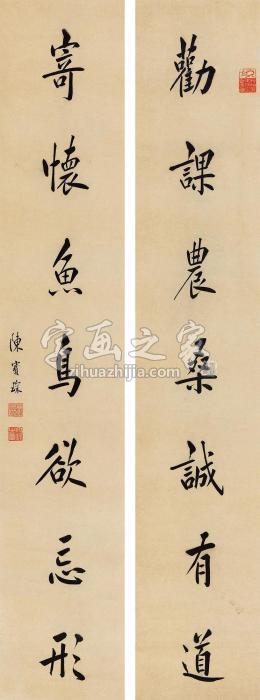 勸課農桑誠有道
寄懷魚鳥欲忘形
陳寶琛
字画之家
zihuazhijia.com